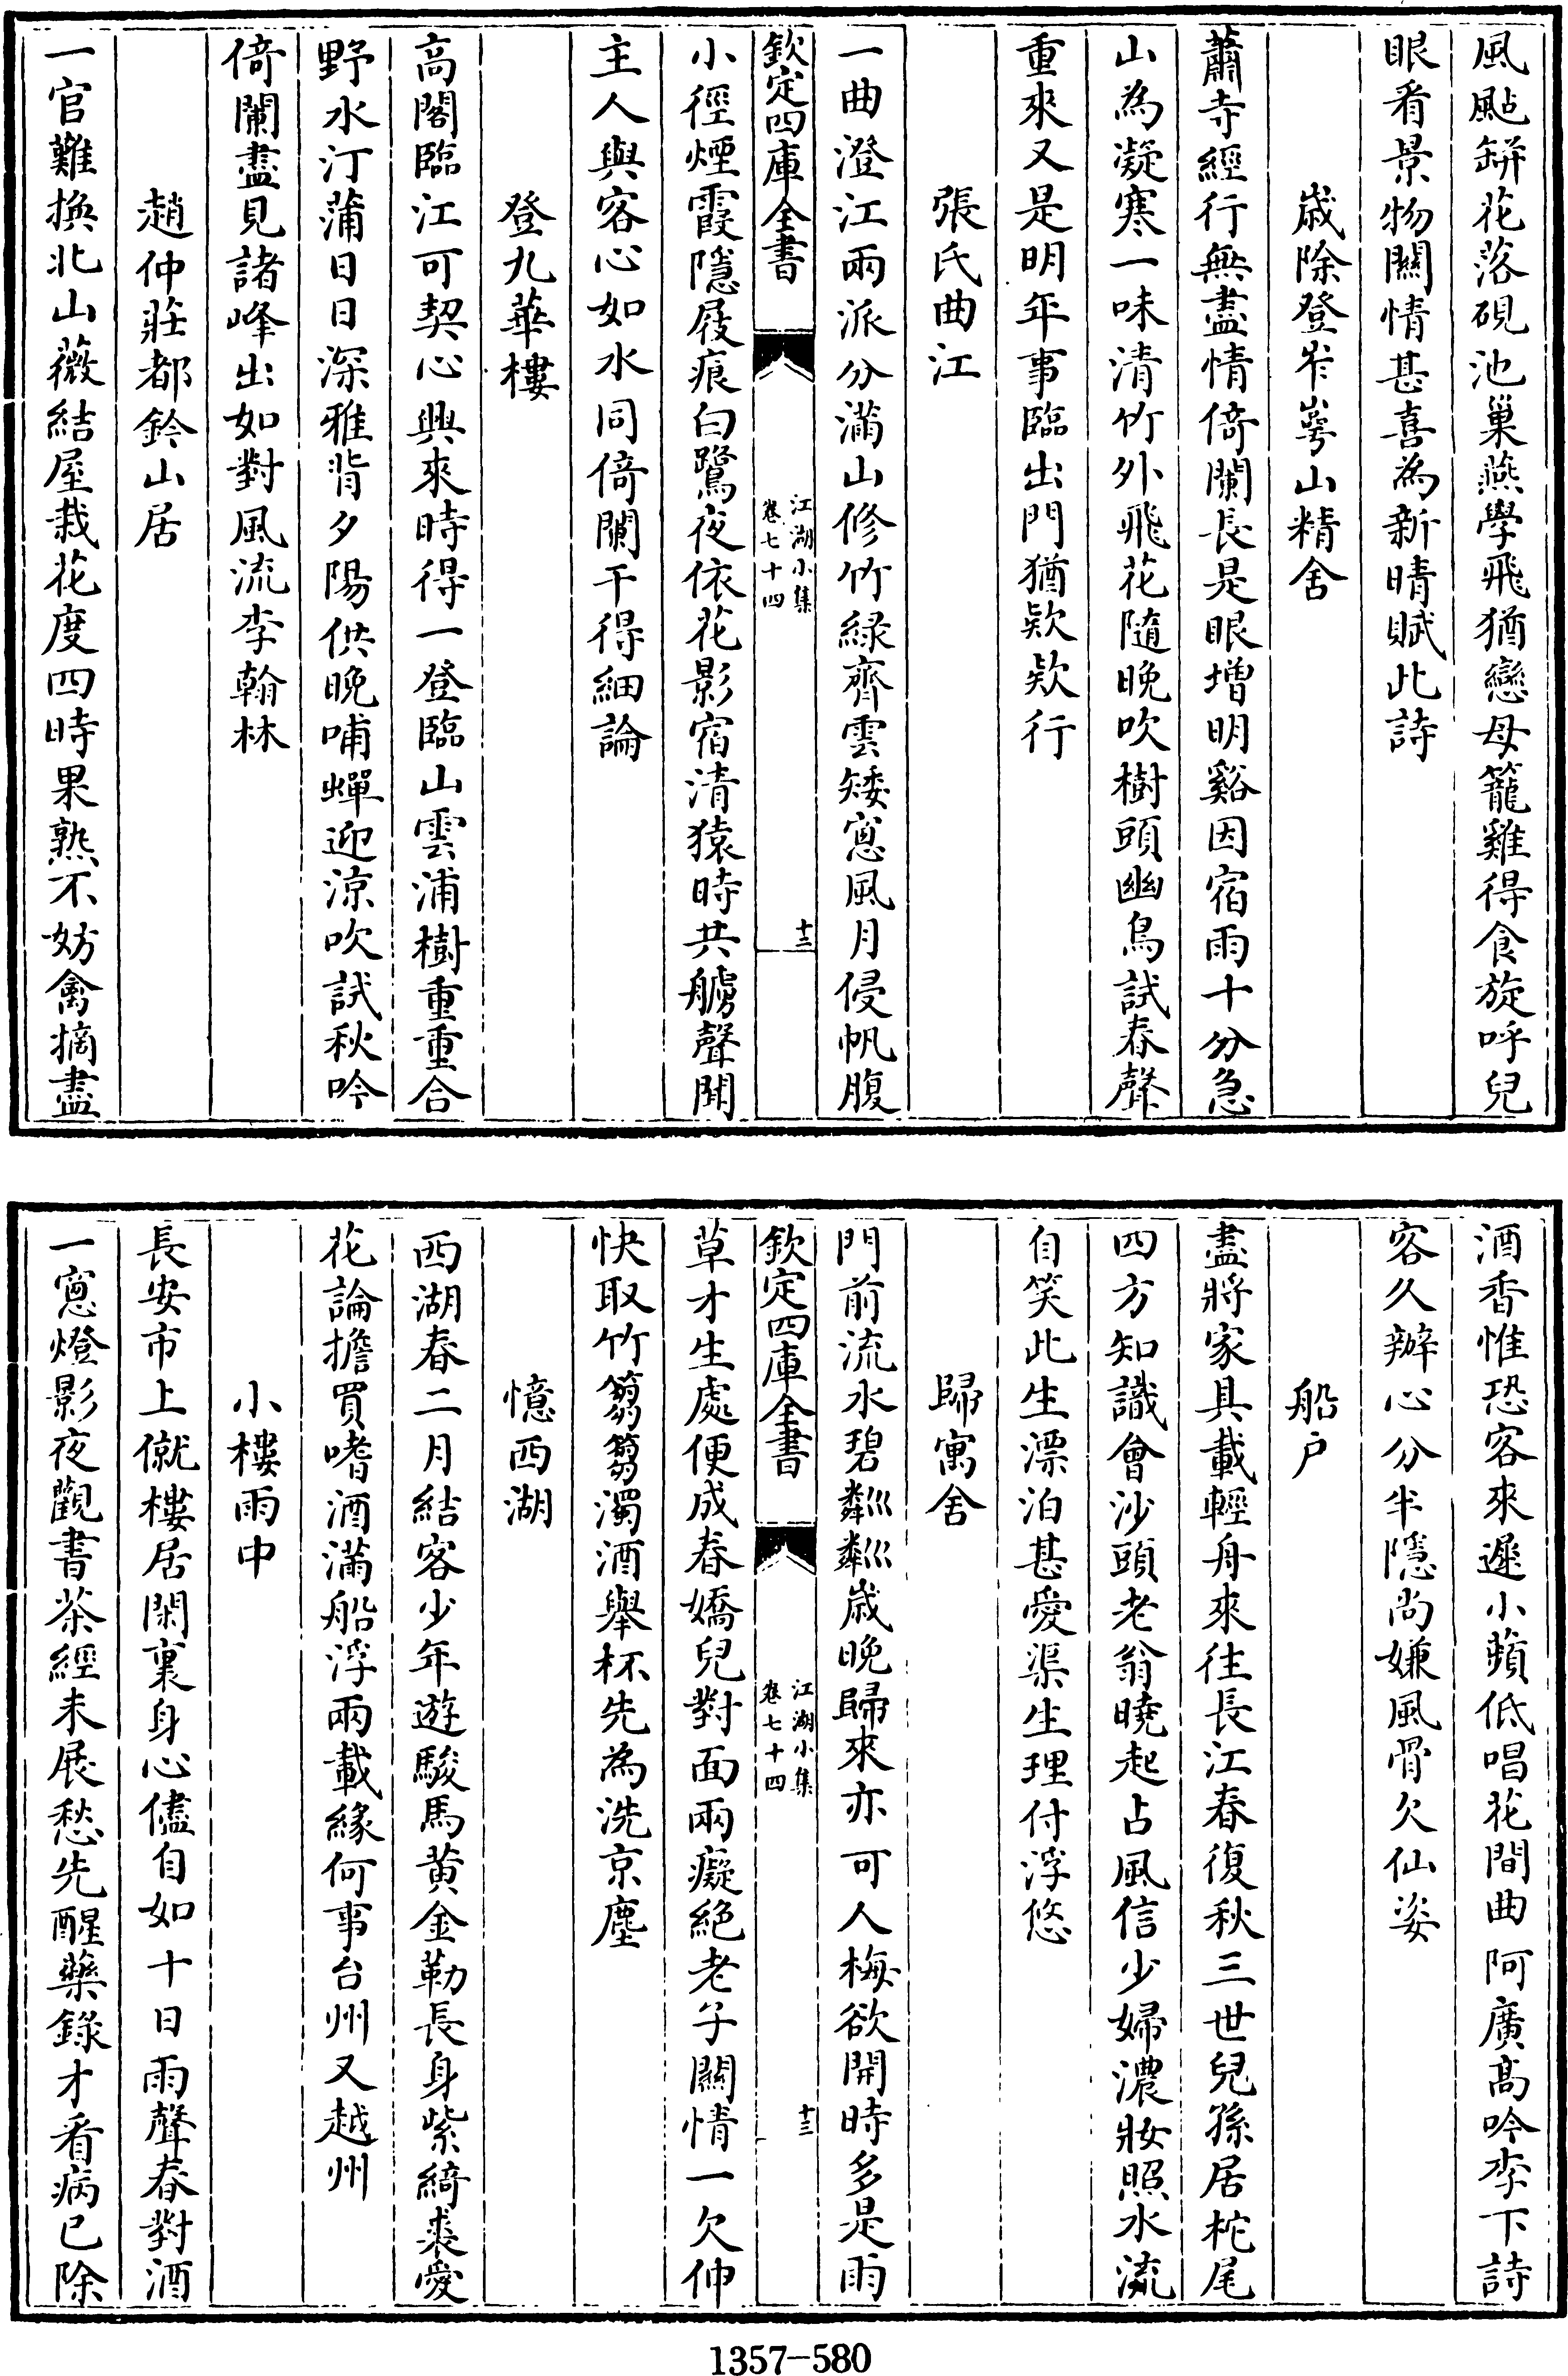 風颭缾花落硯池巢燕學飛猶戀母籠雞得食旋呼兒
眼看景物關情甚喜為新晴賦此詩
歲除登岝崿山精舍
蕭寺經行無盡情倚闌長是眼增明谿因宿雨十分急
山為凝寒一味清竹外飛花隨晚吹樹頭幽鳥試春聲
重來又是明年事臨出門猶欵欵行
張氏曲江
一曲澄江兩派分滿山修竹綠齊雲矮窻風月侵帆腹
欽定四庫全書
江湖小集
卷七十四
十三
小徑煙霞隱屐痕白鷺夜依花影宿清猿時共艣聲聞
主人與客心如水同倚闌干得細論
登九華樓
高閣臨江可契心興來時得一登臨山雲浦樹重重合
野水汀蒲日日深雅背夕陽供晚哺蟬迎涼吹試秋吟
倚闌盡見諸峰出如對風流李翰林
趙仲莊都鈐山居
一官難換北山薇結屋栽花度四時果熟不妨禽摘盡
酒香惟恐客來遲小蘋低唱花間曲阿廣高吟李下詩
客久辦心分半隱尚嫌風骨欠仙姿
船戶
盡將家具載輕舟來往長江春復秋三世兒孫居柁尾
四方知識會沙頭老翁曉起占風信少婦濃妝照水流
自笑此生漂泊甚愛渠生理付浮悠
歸寓舍
門前流水碧粼粼歲晚歸來亦可人梅欲開時多是雨
欽定四庫全書
江湖小集
卷七十四
十三
草才生處便成春嬌兒對面兩癡絕老子關情一欠伸
快取竹篘篘濁酒舉杯先為洗京塵
憶西湖
西湖春二月結客少年遊駿馬黃金勒長身紫綺裘愛
花論擔買嗜酒滿船浮兩載緣何事台州又越州
小樓雨中
長安市上僦樓居閑裏身心儘自如十日雨聲春對酒
一窻燈影夜觀書茶經未展愁先醒藥錄才看病已除
1357-580